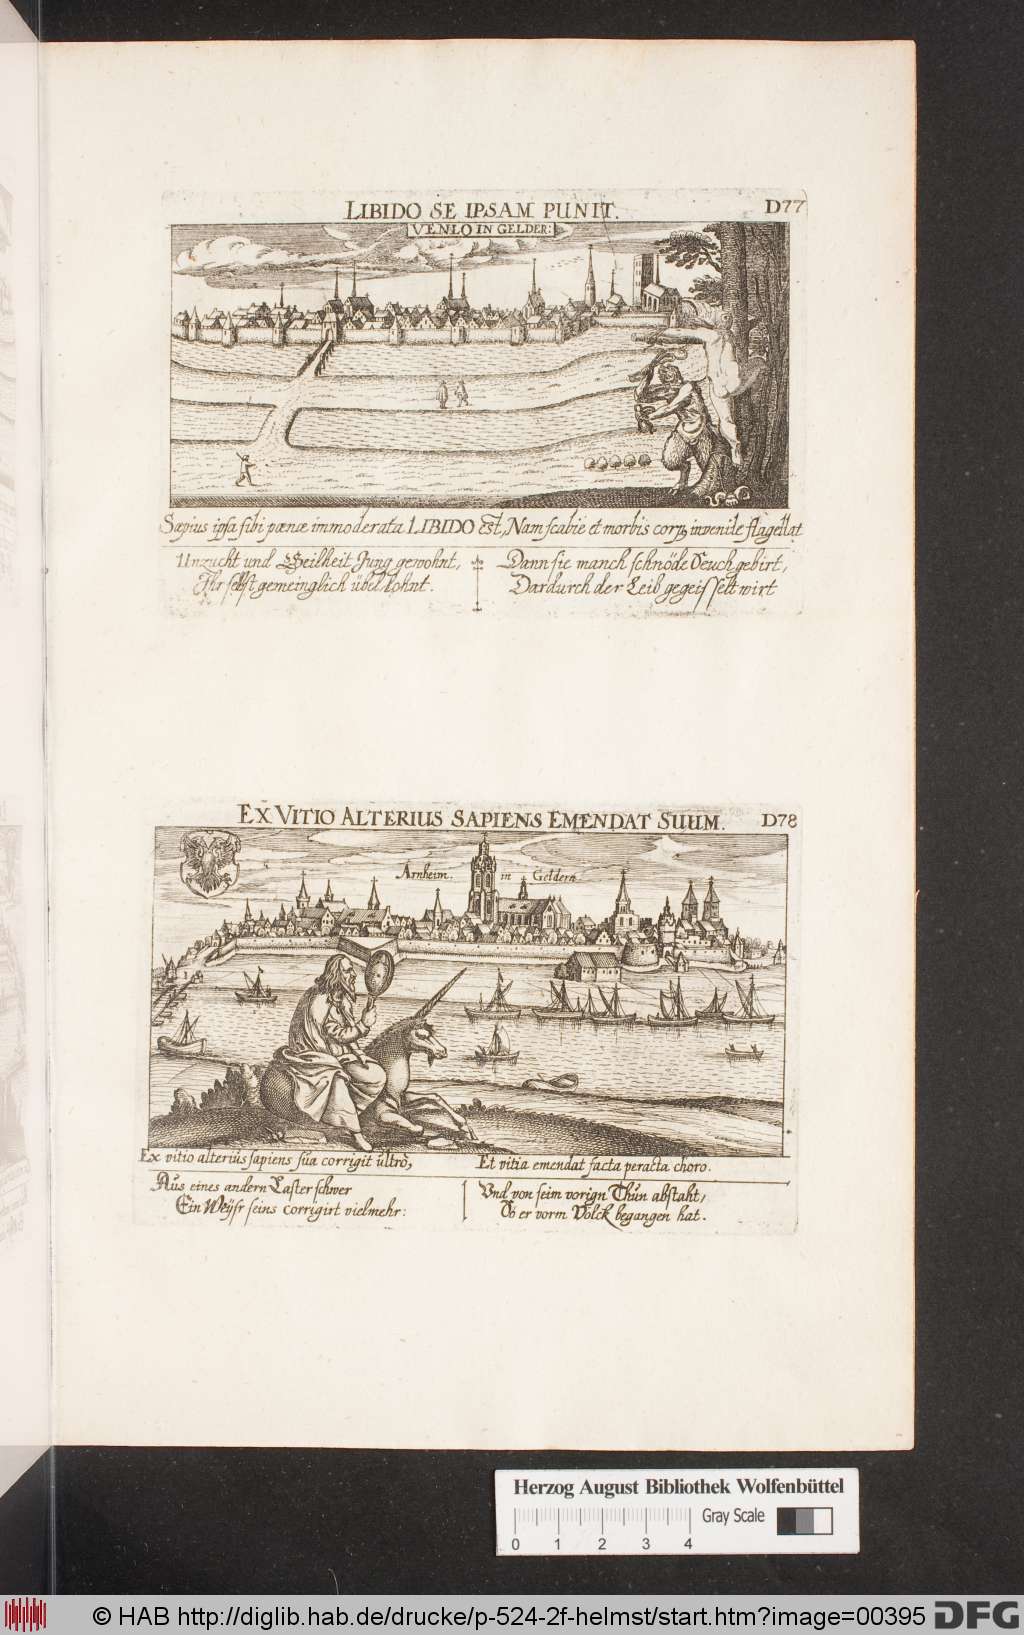 LIBIDO SE IPSAM PUNIT.
D77
VENLO IN GELDER:
Sæpius ipsa sibi pœnæ immoderata LIBIDO est, Nam scabie et morbis corpus invenile flagellat
Unzucht und Geilheit Jung gewohnt,
Ihr selbst gemeinglich übel lohnt.
Dann sie manch schnöde Seuch gebirt,
Dardurch der Leib gegeisselt wirt
EX VITIO ALTERIUS SAPIENS EMENDAT SUUM.
D78
Arnheim. in Geldern
Ex vitio alterius sapiens sua corrigit ultrò,
Et vitia emendat facta peracta choro.
Aus eines andern Laster schwer
Ein Weysr seins corrigirt vielmehr:
Und von seim vorign Thun abstaht,
Ob er vorm Volck begangen hat.
Herzog August Bibliothek Wolfenbüttel
Gray Scale
0 1 2 3 4
© HAB http://diglib.hab.de/drucke/p-524-2f-helmst/start.htm?image=00395
DFG